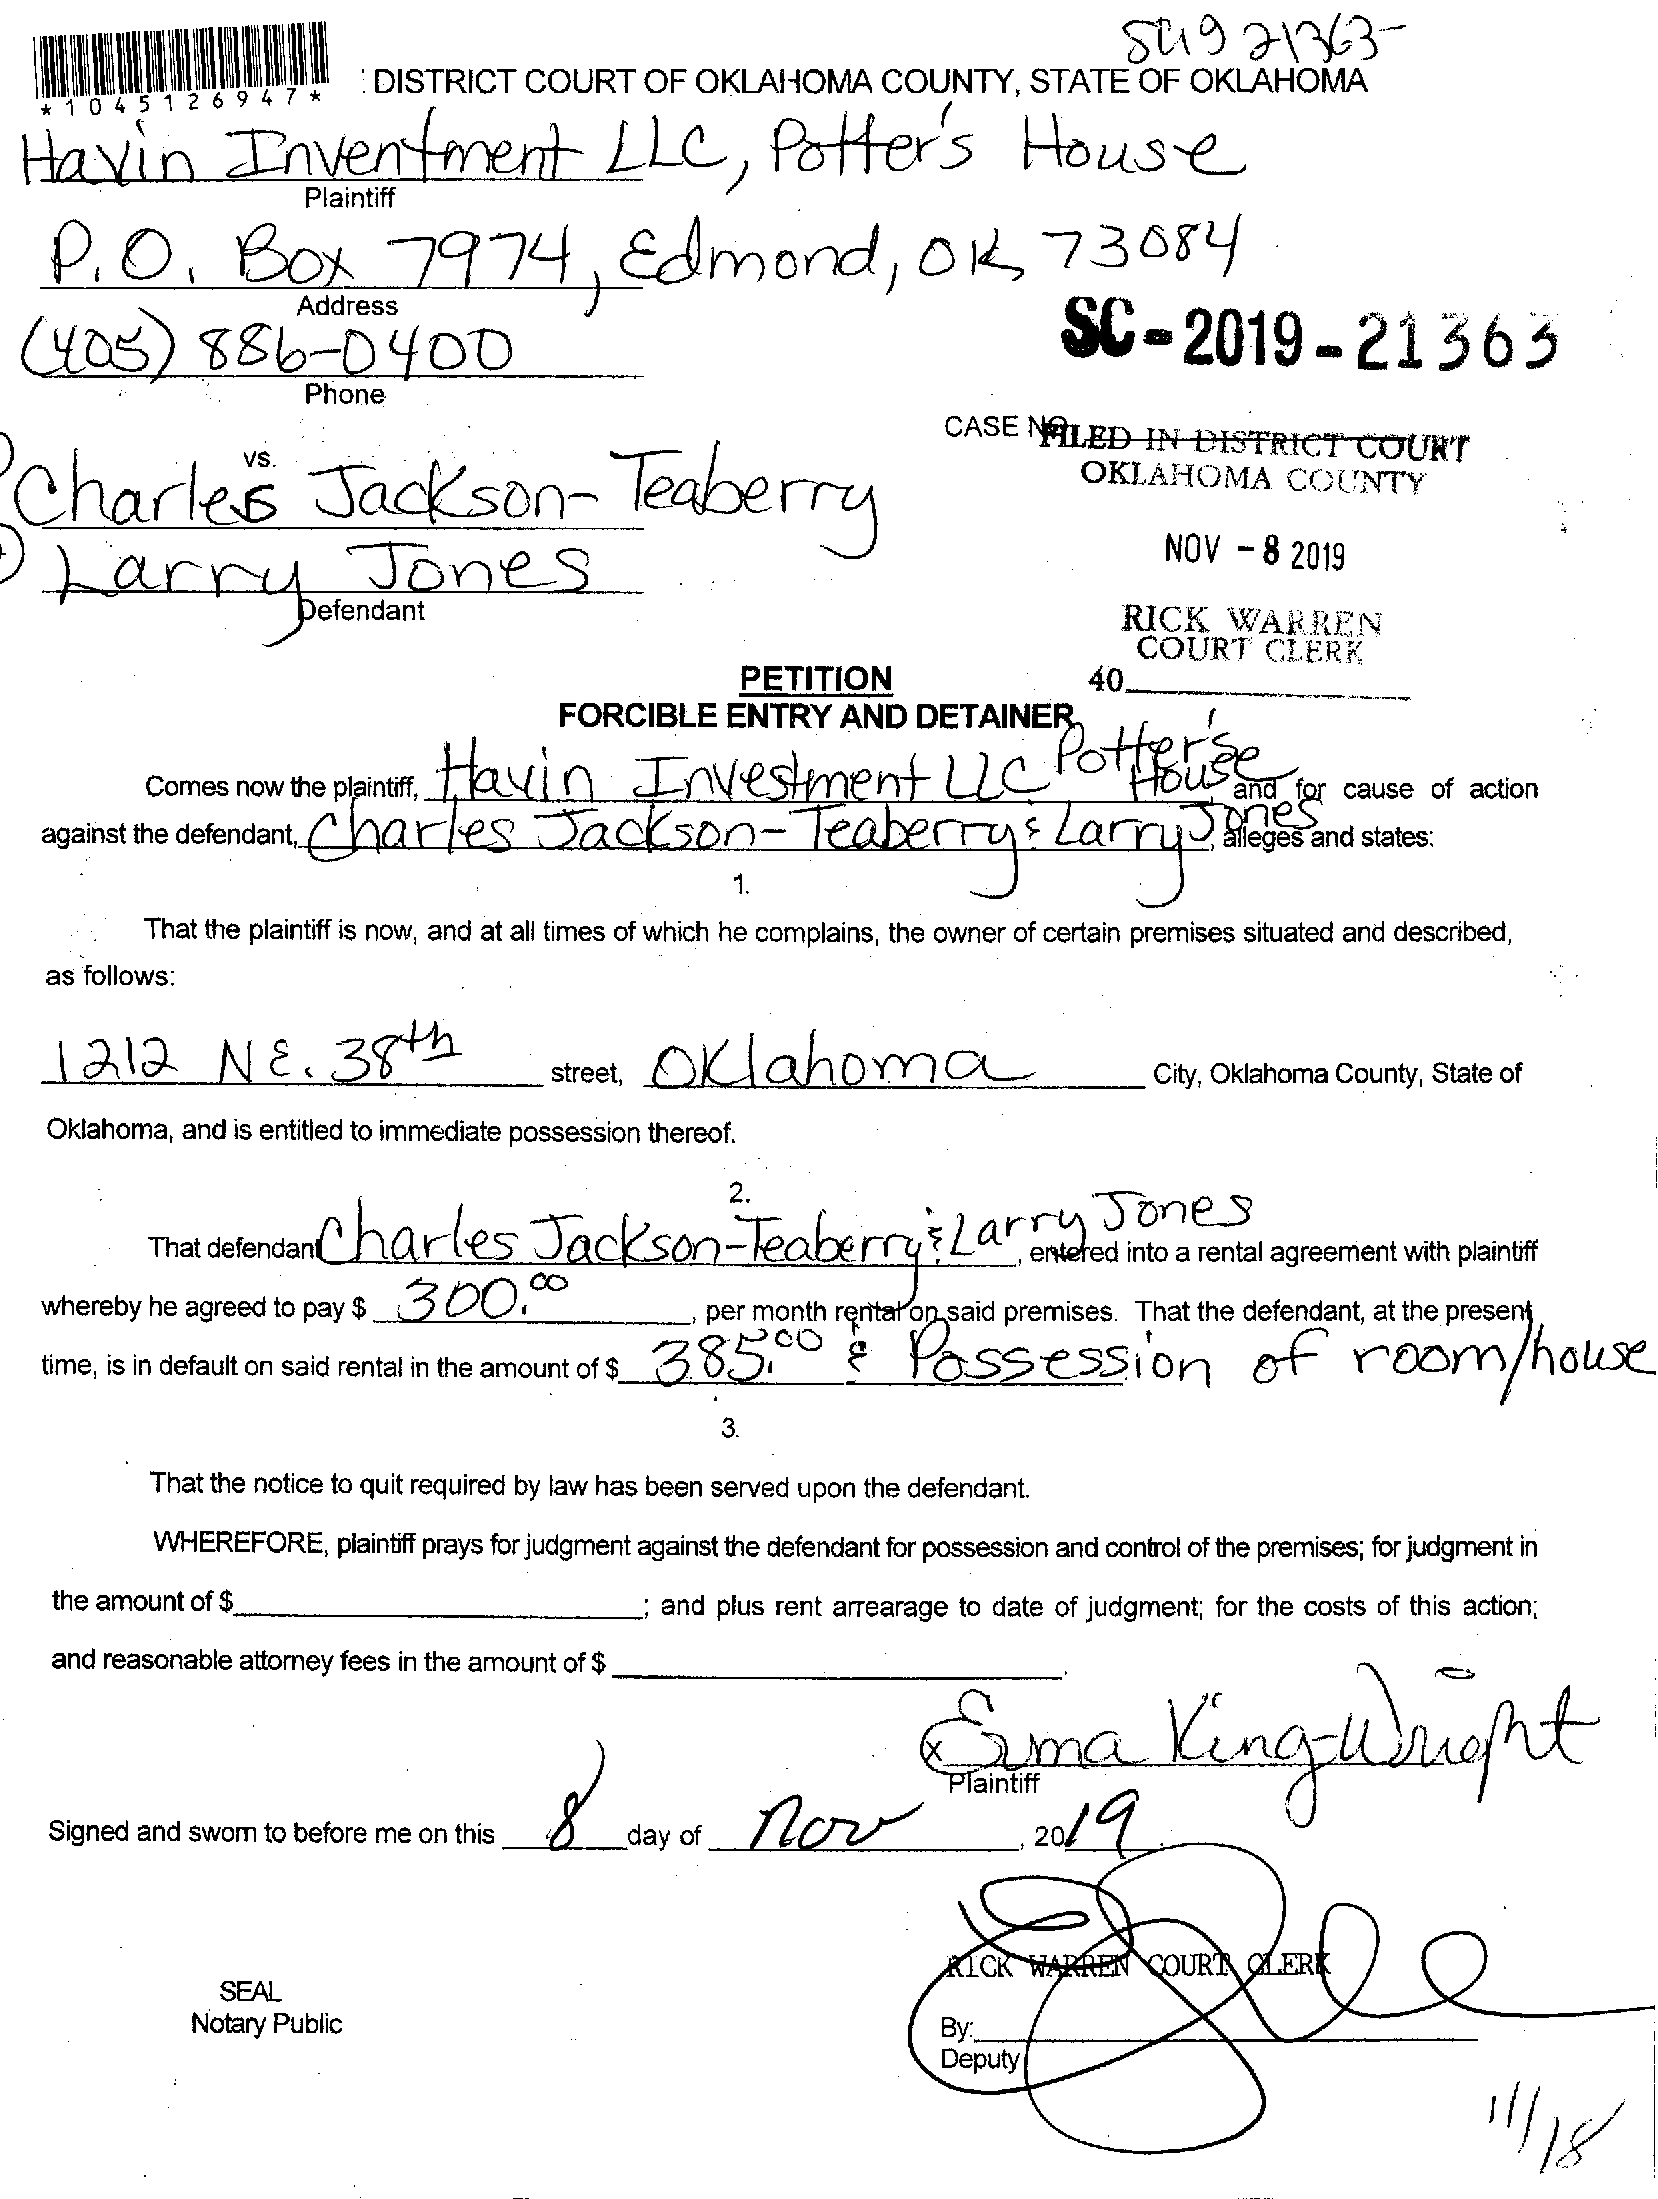 SC19 21363-
*1045126947*
DISTRICT COURT OF OKLAHOMA COUNTY, STATE OF OKLAHOMA
Havin Inventment LLC, Potter's House
Plaintiff
P.O. Box 7974, Edmond, OK 73084
Address
SC-2019-21363
(405) 886-0400
Phone
CASE NO.
FILED IN DISTRICT COURT
OKLAHOMA COUNTY
vs.
Charles Jackson-Teaberry
NOV - 8 2019
Larry Jones
Defendant
RICK WARREN
COURT CLERK
40
PETITION
FORCIBLE ENTRY AND DETAINER
Comes now the plaintiff, Havin Investment LLC Potter's House and for cause of action
against the defendant, Charles Jackson-Teaberry & Larry Jones, alleges and states:
1.
That the plaintiff is now, and at all times of which he complains, the owner of certain premises situated and described,
as follows:
1212 NE. 38th street, Oklahoma City, Oklahoma County, State of
Oklahoma, and is entitled to immediate possession thereof.
2.
That defendant Charles Jackson-Teaberry & Larry Jones, entered into a rental agreement with plaintiff
whereby he agreed to pay $ 300.00, per month rental on said premises. That the defendant, at the present
time, is in default on said rental in the amount of $ 385.00 & Possession of room/house
3.
That the notice to quit required by law has been served upon the defendant.
WHEREFORE, plaintiff prays for judgment against the defendant for possession and control of the premises; for judgment in
the amount of $ ; and plus rent arrearage to date of judgment; for the costs of this action;
and reasonable attorney fees in the amount of $ .
x Erma King-Wright
Plaintiff
Signed and sworn to before me on this 8 day of Nov, 2019
RICK WARREN COURT CLERK
SEAL
Notary Public
By:
Deputy
11/18